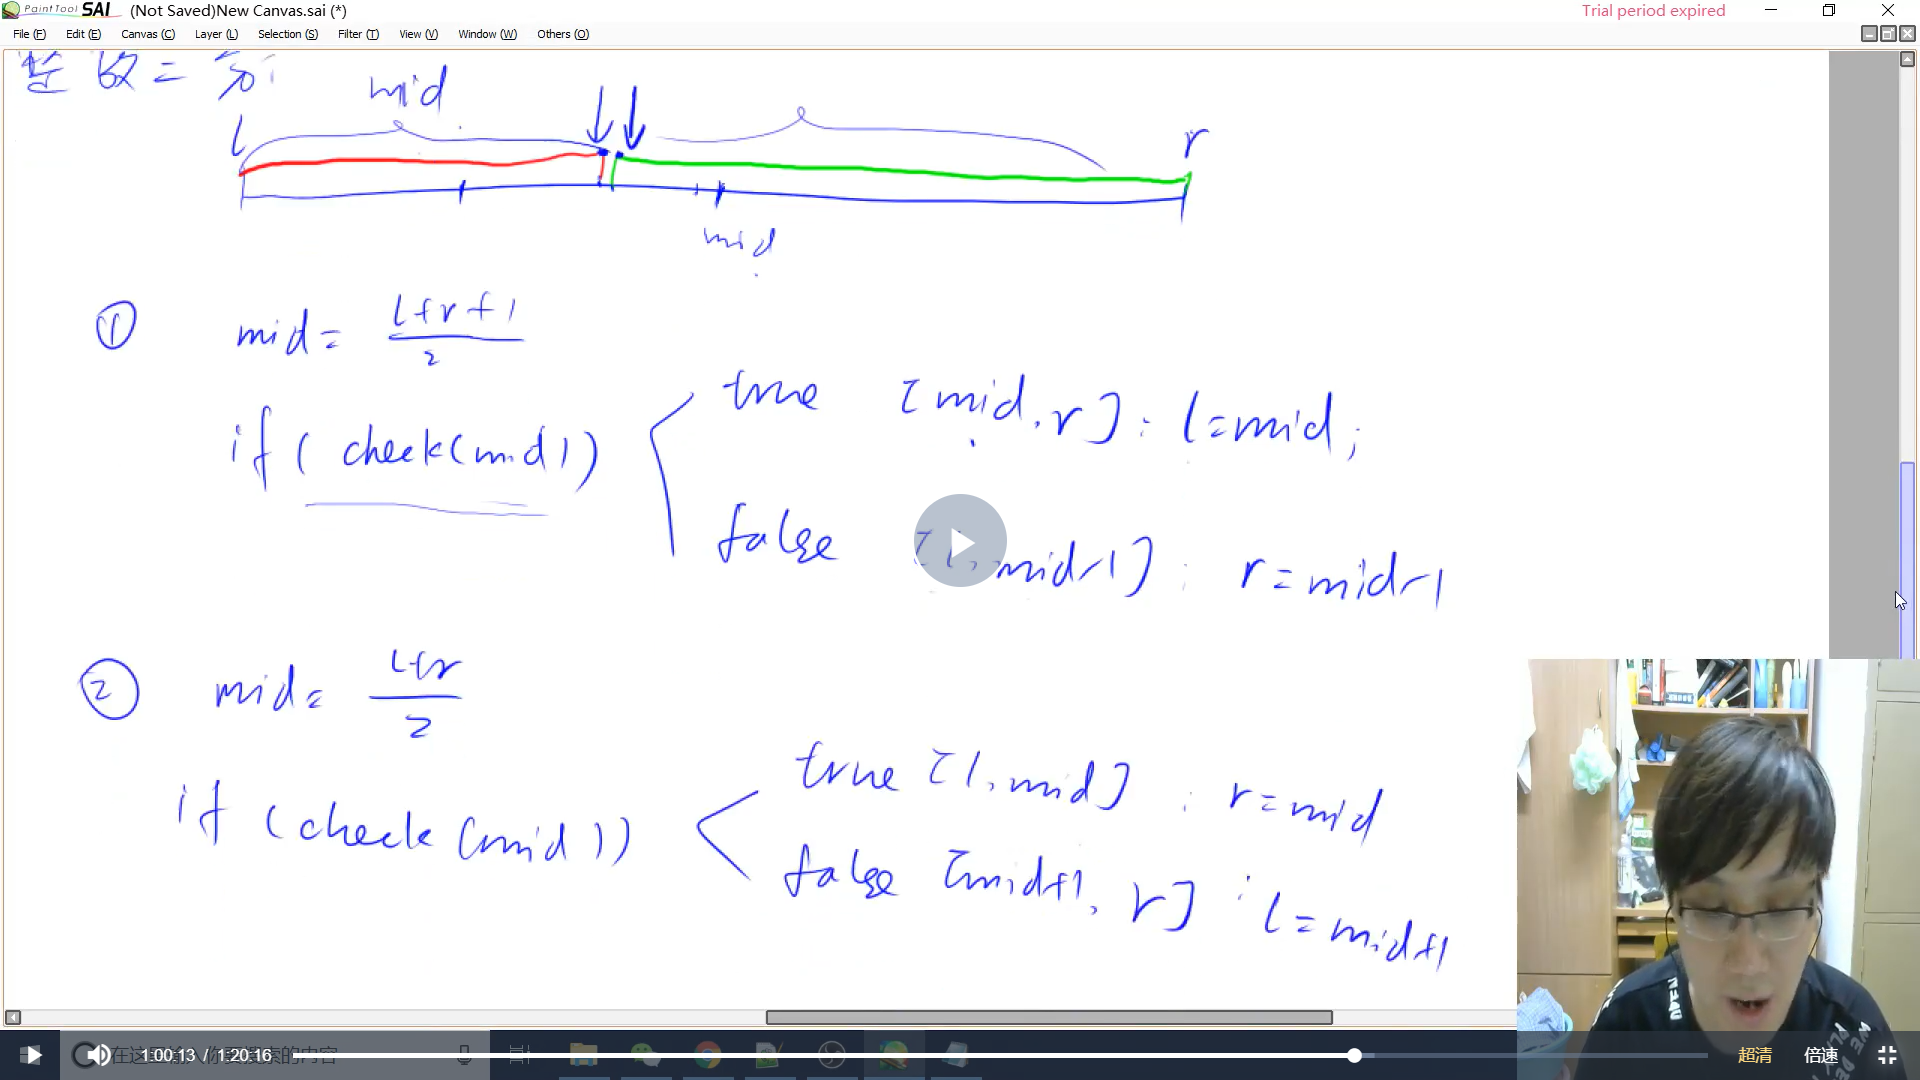 PaintTool SAI (Not Saved)New Canvas.sai (*) Trial period expired
File (F) Edit (E) Canvas (C) Layer (L) Selection (S) Filter (T) View (V) Window (W) Others (O)
整数二分
mid
l r
mid
① mid = (l+r+1)/2
if ( check(mid)) true [mid, r] : l=mid;
false [l, mid-1] : r=mid-1
② mid = (l+r)/2
if (check(mid)) true [l, mid] : r=mid
false [mid+1, r] : l=mid+1
1:00:13 / 1:20:16 超清 倍速